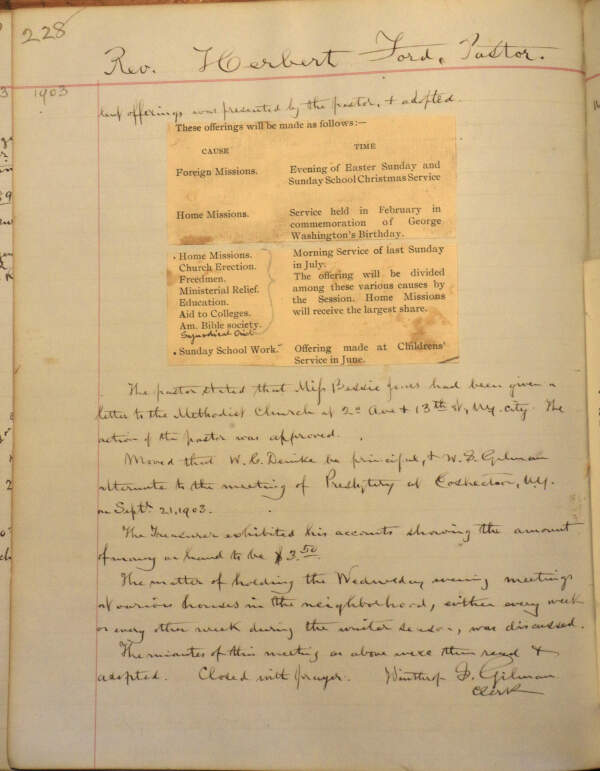 228
Rev. Herbert Ford, Pastor.
1903
lent offerings was presented by the pastor, & adopted.
These offerings will be made as follows:—
CAUSE TIME
Foreign Missions. Evening of Easter Sunday and
Sunday School Christmas Service
Home Missions. Service held in February in
commemoration of George
Washington's Birthday.
Home Missions. Morning Service of last Sunday
Church Erection. in July.
Freedmen. The offering will be divided
Ministerial Relief. among these various causes by
Education. the Session. Home Missions
Aid to Colleges. will receive the largest share.
Am. Bible society.
Synodical Aid
Sunday School Work. Offering made at Childrens'
Service in June.
The pastor stated that Miss Bessie Jones had been given a
letter to the Methodist Church at 2d Ave & 13th st, N.y. city. The
action of the pastor was approved.
Moved that W. C. Demke be principal, & W. S. Gilman
alternate to the meeting of Presbytery at Cochecton, N.y.
on Septr. 21, 1903.
The Treasurer exhibited his accounts showing the amount
of money on hand to be $3.50
The matter of holding the Wednesday evening meetings
at various houses in the neighborhood, either every week
or every other week during the winter season, was discussed.
The minutes of this meeting as above were then read &
adopted. Closed with prayer. Winthrop S. Gilman
Clerk